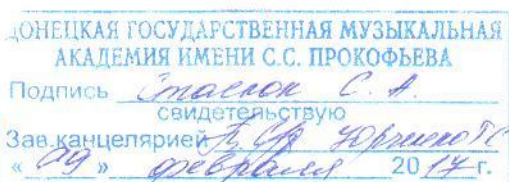 ДОНЕЦКАЯ ГОСУДАРСТВЕННАЯ МУЗЫКАЛЬНАЯ
АКАДЕМИЯ ИМЕНИ С.С. ПРОКОФЬЕВА
Подпись Стасюк С. А.
свидетельствую
Зав.канцелярией Юрченко
« 09 » февраля 2017 г.